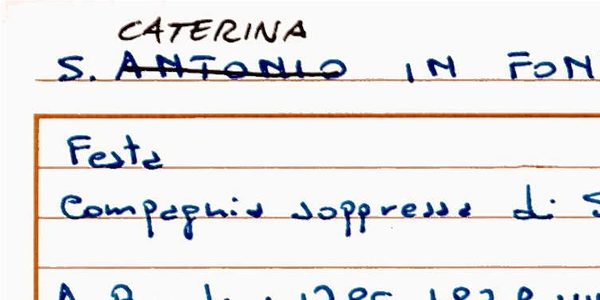 CATERINA
S. ANTONIO IN FON
Festa
Compagnia soppressa di S